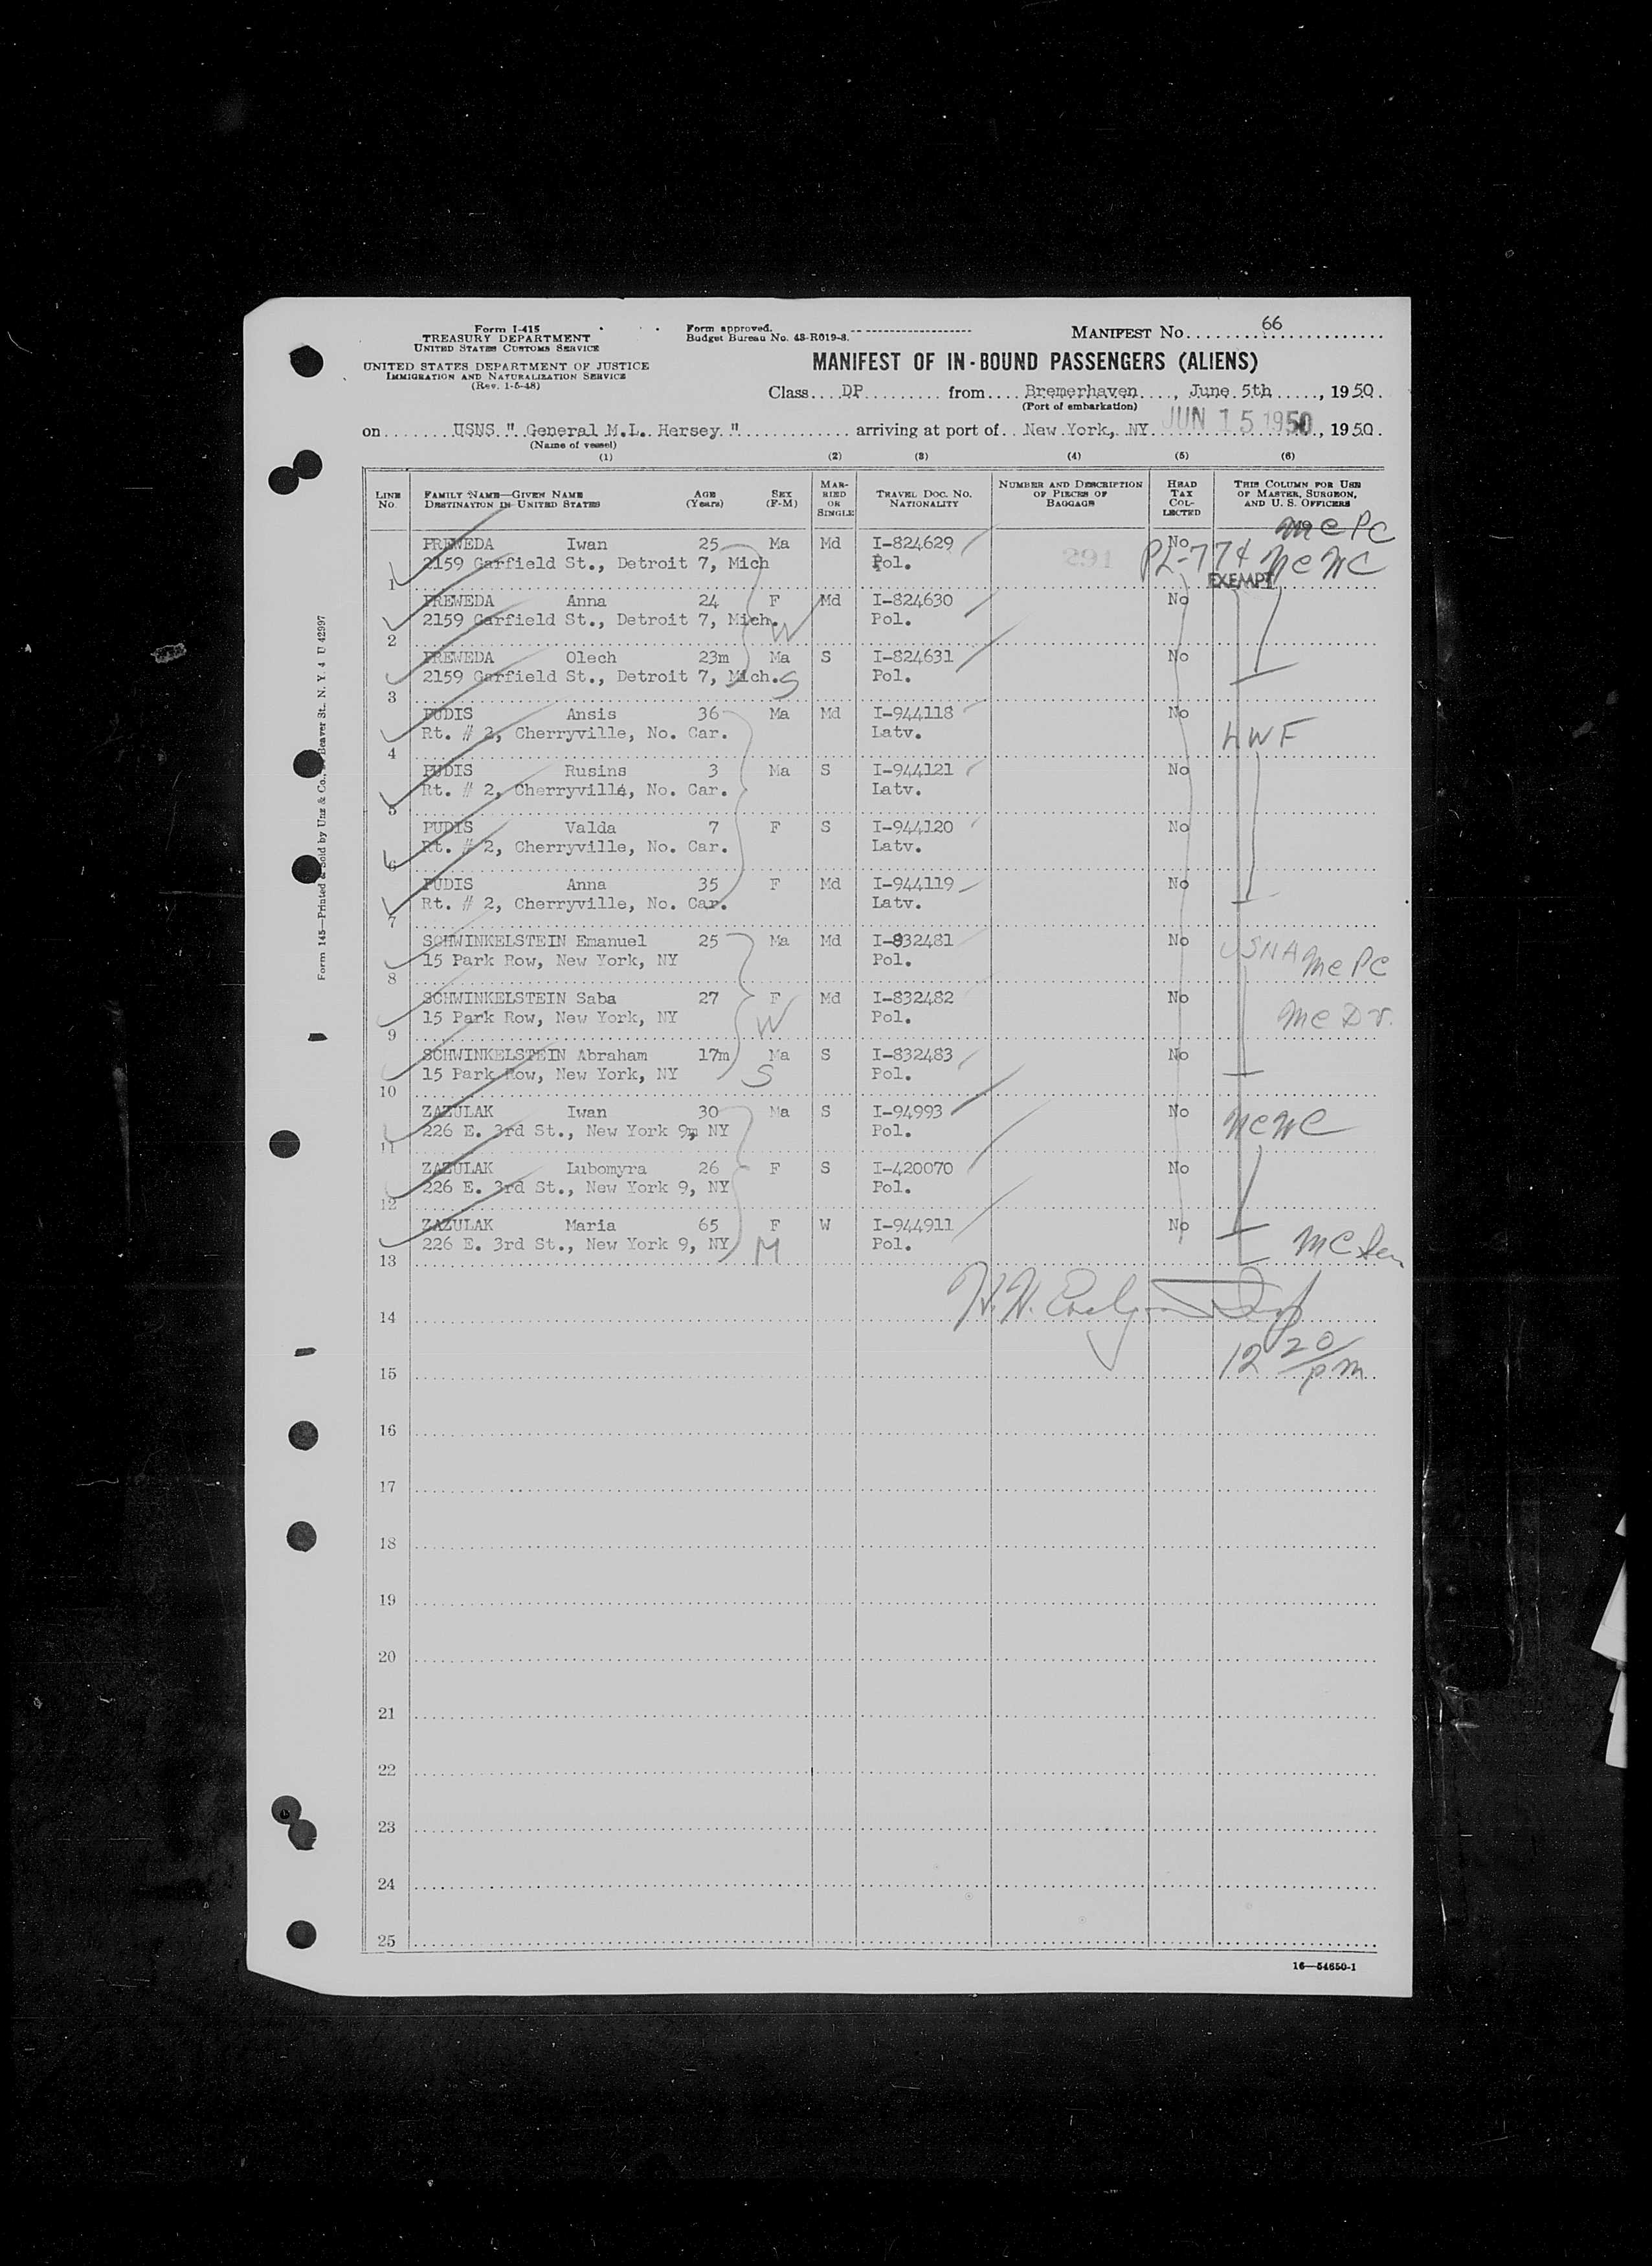 Form I-415
TREASURY DEPARTMENT
UNITED STATES CUSTOMS SERVICE
UNITED STATES DEPARTMENT OF JUSTICE
IMMIGRATION AND NATURALIZATION SERVICE
(Rev. 1-5-48)
Form approved.
Budget Bureau No. 43-R019-3.
MANIFEST No. 66
MANIFEST OF IN-BOUND PASSENGERS (ALIENS)
Class DP from Bremerhaven, June 5th, 1950.
(Port of embarkation)
on USNS " General M.L. Hersey " arriving at port of New York, NY JUN 15 1950, 1950.
(Name of vessel)
(1) (2) (3) (4) (5) (6)
LINE No. FAMILY NAME—GIVEN NAME DESTINATION IN UNITED STATES AGE (Years) SEX (F-M) MARRIED OR SINGLE TRAVEL DOC. NO. NATIONALITY NUMBER AND DESCRIPTION OF PIECES OF BAGGAGE HEAD TAX COLLECTED THIS COLUMN FOR USE OF MASTER, SURGEON, AND U. S. OFFICERS
McPC
PREWEDA Iwan 25 Ma Md I-824629 No
2159 Garfield St., Detroit 7, Mich Pol. 291 PL-774 NCWC
1 EXEMPT
PREWEDA Anna 24 F Md I-824630 No
2159 Garfield St., Detroit 7, Mich. W Pol.
2
PREWEDA Olech 23m Ma S I-824631 No
2159 Garfield St., Detroit 7, Mich. S Pol.
3
PUDIS Ansis 36 Ma Md I-944118 No
Rt. # 2, Cherryville, No. Car. Latv. LWF
4
PUDIS Rusins 3 Ma S I-944121 No
Rt. # 2, Cherryville, No. Car. Latv.
5
PUDIS Valda 7 F S I-944120 No
Rt. # 2, Cherryville, No. Car. Latv.
6
PUDIS Anna 35 F Md I-944119 No
Rt. # 2, Cherryville, No. Car. Latv.
7
SCHWINKELSTEIN Emanuel 25 Ma Md I-832481 No USNA
15 Park Row, New York, NY Pol. McPC
8
SCHWINKELSTEIN Saba 27 F Md I-832482 No
15 Park Row, New York, NY W Pol. Mc Dr.
9
SCHWINKELSTEIN Abraham 17m Ma S I-832483 No
15 Park Row, New York, NY S Pol.
10
ZAZULAK Iwan 30 Ma S I-94993 No
226 E. 3rd St., New York 9, NY Pol. NCWC
11
ZAZULAK Lubomyra 26 F S I-420070 No
226 E. 3rd St., New York 9, NY Pol.
12
ZAZULAK Maria 65 F W I-944911 No
226 E. 3rd St., New York 9, NY M Pol. Mc Sen
13
14
12 20/pm
15
16
17
18
19
20
21
22
23
24
25
16—54650-1
Form 145—Printed & Sold by Unz & Co., Beaver St., N. Y. 4 U 42997